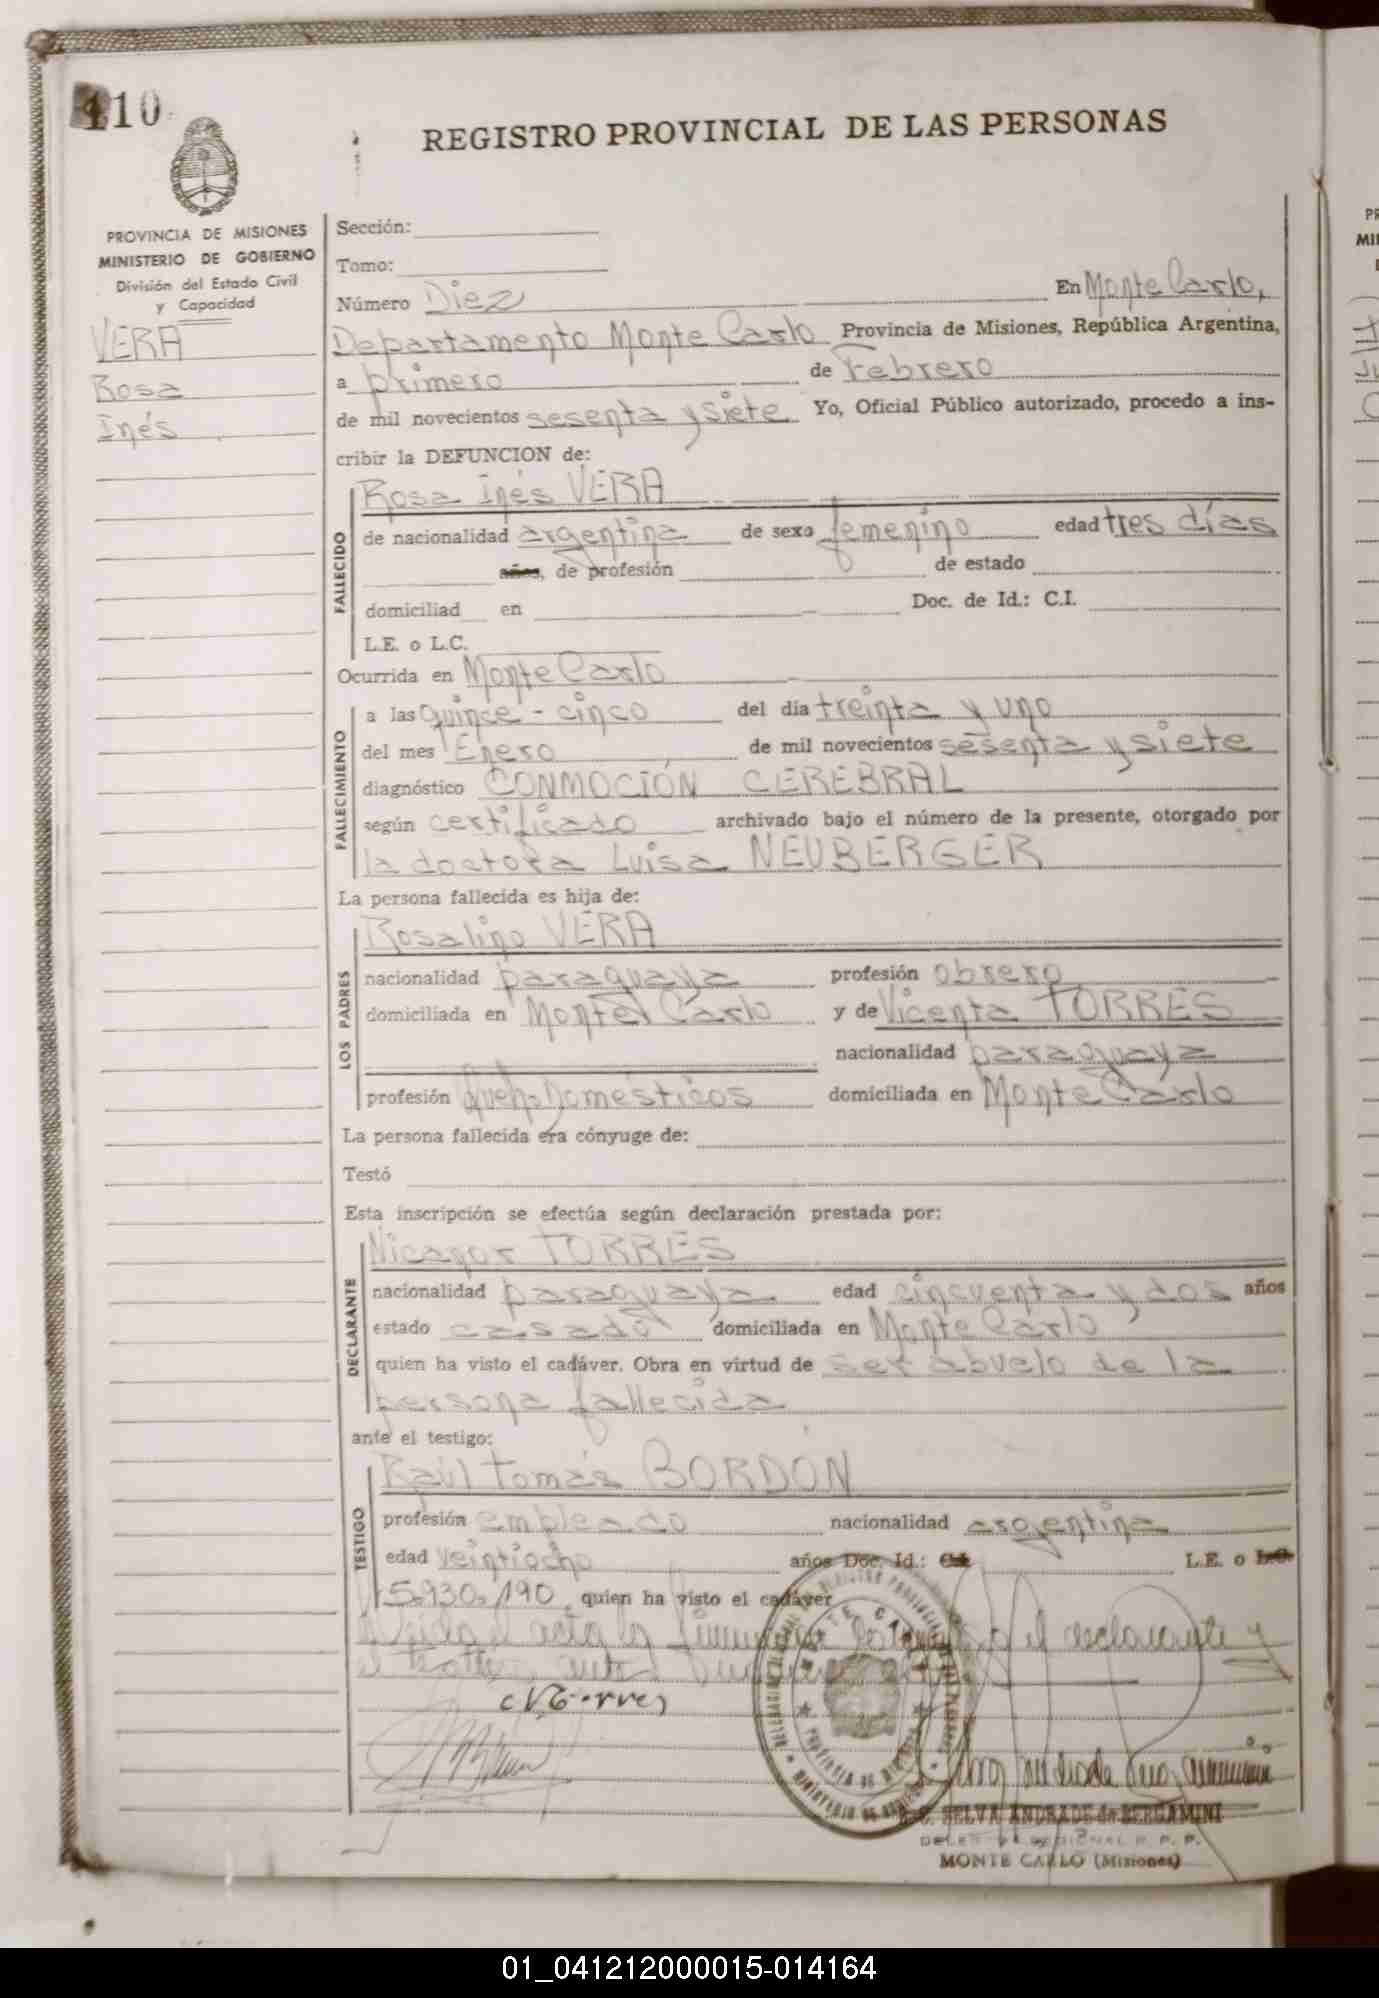 110
REGISTRO PROVINCIAL DE LAS PERSONAS
PROVINCIA DE MISIONES
MINISTERIO DE GOBIERNO
División del Estado Civil
y Capacidad
VERA
Rosa
Inés
Sección:
Tomo:
Número Diez En Monte Carlo,
Departamento Monte Carlo Provincia de Misiones, República Argentina,
a primero de Febrero
de mil novecientos sesenta y siete Yo, Oficial Público autorizado, procedo a ins-
cribir la DEFUNCION de:
Rosa Inés VERA
FALLECIDO
de nacionalidad argentina de sexo femenino edad tres días
años, de profesión de estado
domiciliad en Doc. de Id.: C.I.
L.E. o L.C.
Ocurrida en Monte Carlo
FALLECIMIENTO
a las quince - cinco del día treinta y uno
del mes Enero de mil novecientos sesenta y siete
diagnóstico CONMOCIÓN CEREBRAL
según certificado archivado bajo el número de la presente, otorgado por
la doctora Luisa NEUBERGER
La persona fallecida es hija de:
LOS PADRES
Rosalino VERA
nacionalidad paraguaya profesión obrero
domiciliada en Monte Carlo y de Vicenta TORRES
nacionalidad paraguaya
profesión Queh. Domésticos domiciliada en Monte Carlo
La persona fallecida era cónyuge de:
Testó
Esta inscripción se efectúa según declaración prestada por:
DECLARANTE
Nicanor TORRES
nacionalidad paraguaya edad cincuenta y dos años
estado casado domiciliada en Monte Carlo
quien ha visto el cadáver. Obra en virtud de ser abuelo de la
persona fallecida
ante el testigo:
TESTIGO
Raúl Tomás BORDÓN
profesión empleado nacionalidad argentina
edad veintiocho años Doc. Id.: C.I. L.E. o L.C.
5.930.190 quien ha visto el cadáver
el acta la el declarante y
el
NTorres
MONTE CARLO
PROVINCIA DE MISIONES
MINISTERIO DE GOBIERNO
SELVA ANDRADE de BERGAMINI
MONTE CARLO (Misiones)
01_041212000015-014164